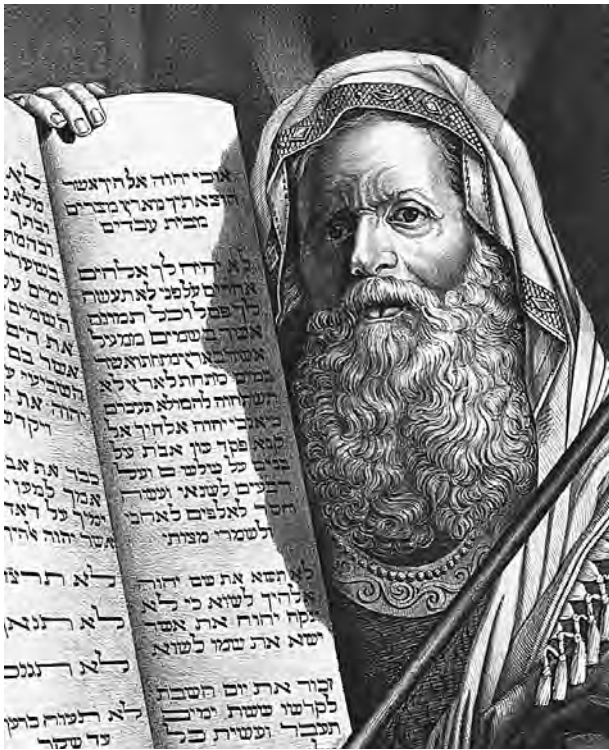 אנכי יהוה אלהיך אשר
הוצאתיך מארץ מצרים
מבית עבדים
לא יהיה לך אלהים
אחרים על פני לא תעשה
לך פסל וכל תמונם
אשר בשמים ממעל
אשר בארץ מתחת ואשר
במים מתחת לארץ לא
תשתחוה להם ולא תעבדם
כי אנכי יהוה אלהיך אל
קנא פקד עון אבת על
בנים על שלשים ועל
רבעים לשנאי ועשה
חסד לאלפים לאהבי
ולשמרי מצותי
לא תשא את שם יהוה
אלהיך לשוא כי לא
ינקה יהוה את אשר
ישא את שמו לשוא
זכור את יום השבת
לקדשו ששת ימים
תעבד ועשית כל
לא
מלאכ
ובתך
ובהמת
בשערי
ימים
השמים
את הים
אשר בם
השביעי
יהוה את
ויקדש
כבד את אב
אמך למען
ימיך על האד
אשר יהוה אלהיך
לא תרצ
לא תנאף
לא תגנב
לא תענה ברעך
עד שקר